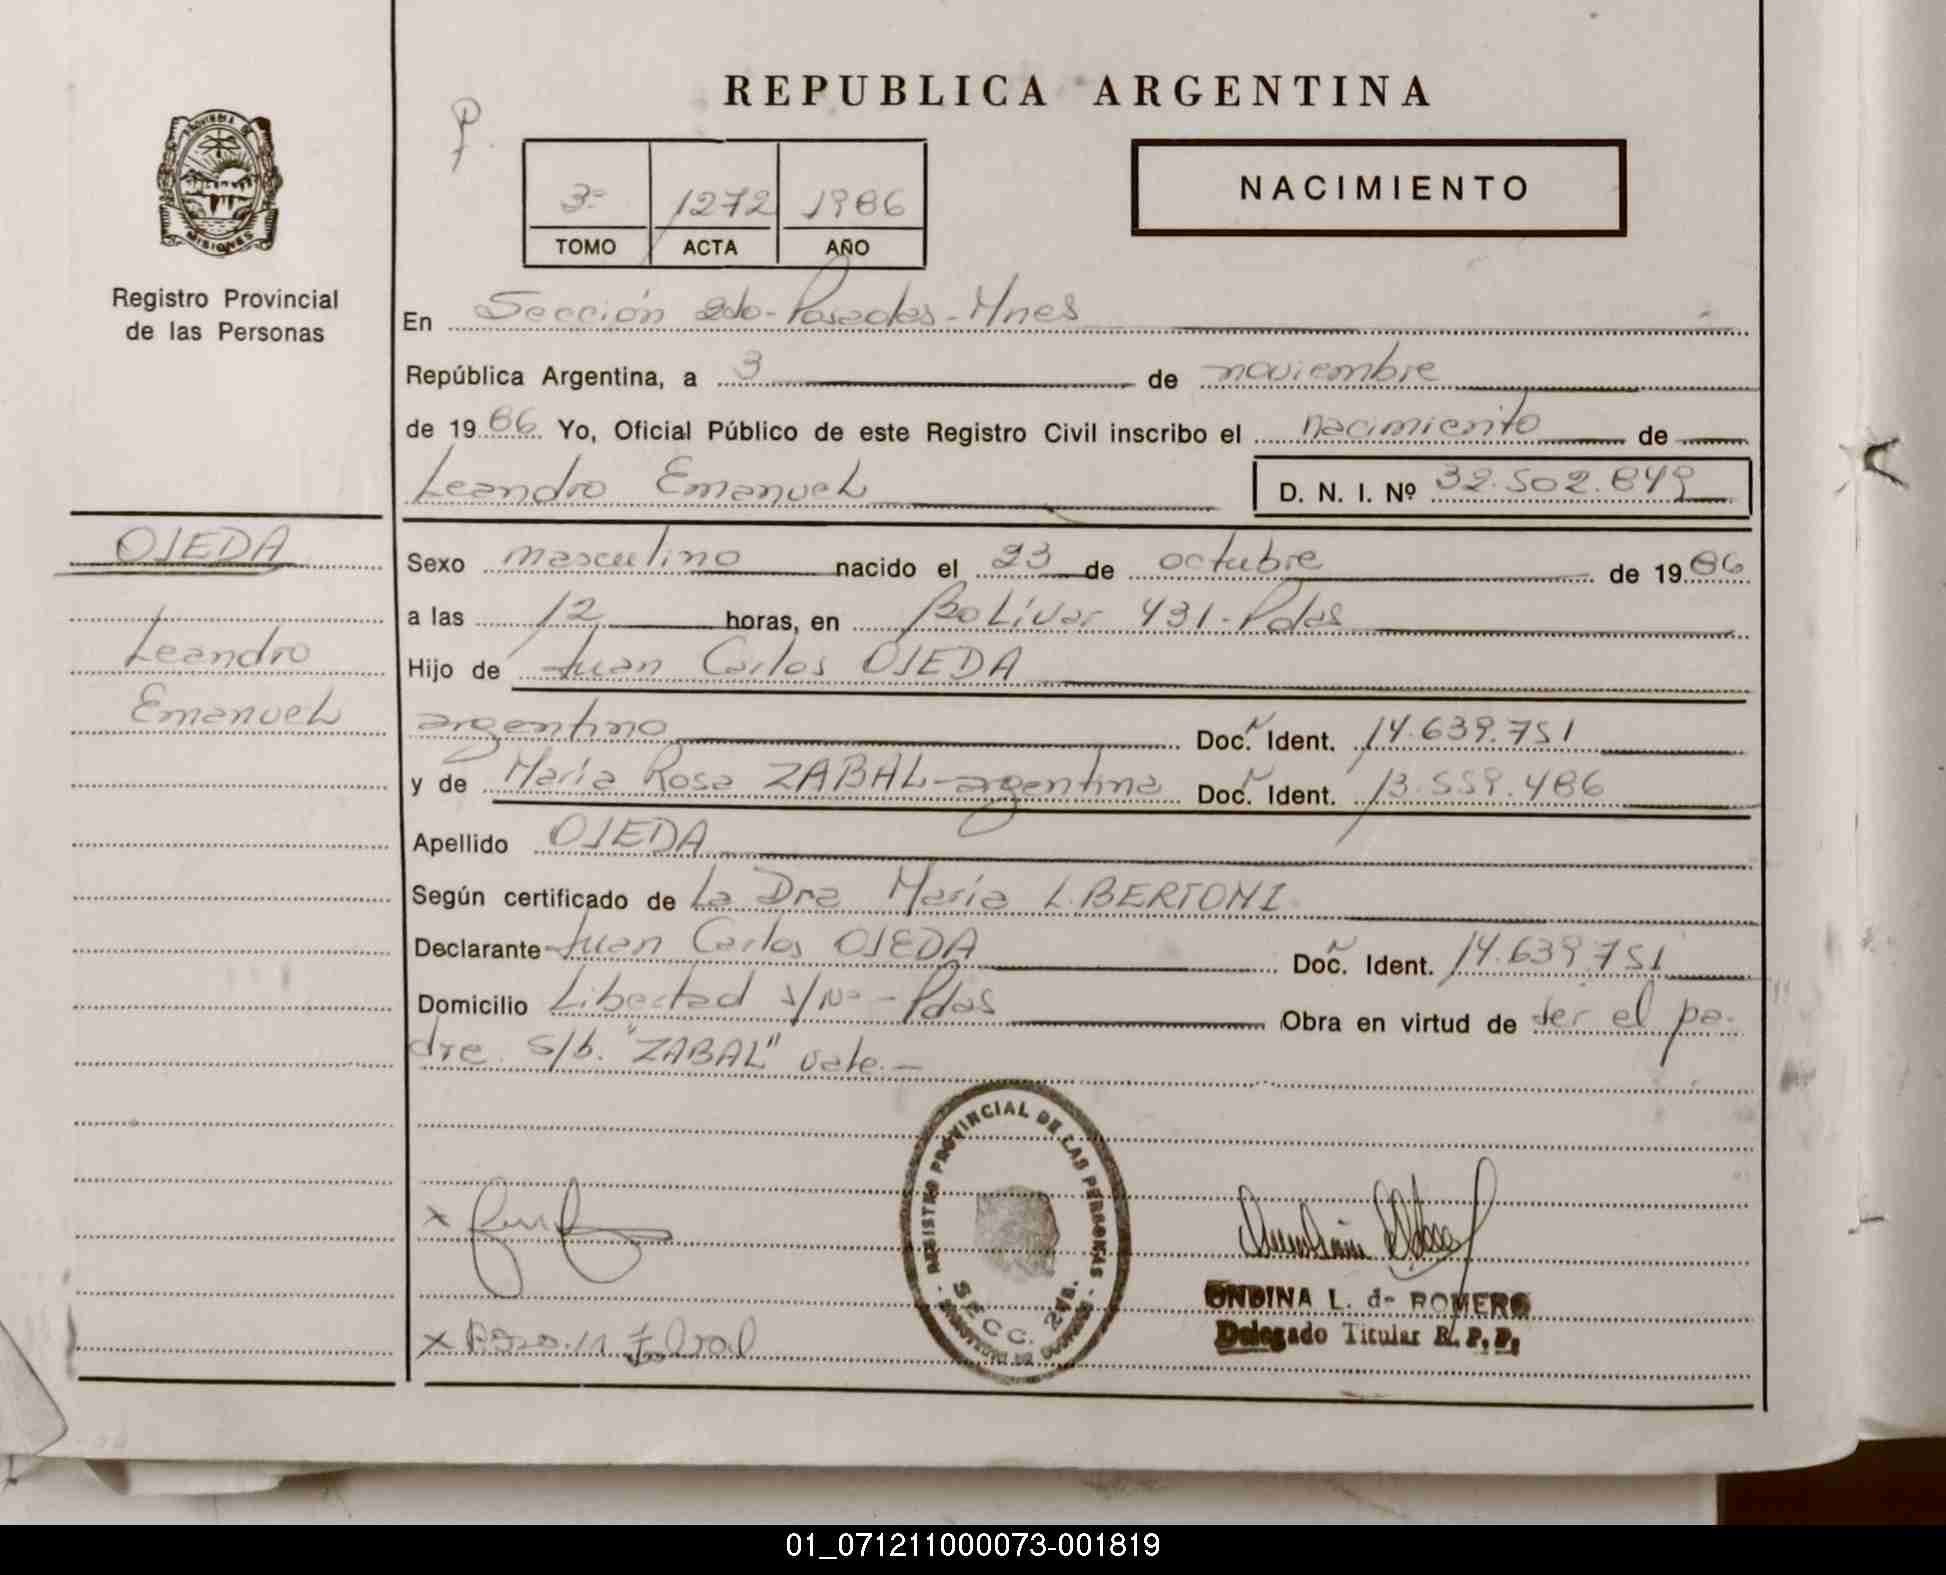 REPUBLICA ARGENTINA
PROVINCIA DE
MISIONES
Registro Provincial
de las Personas
3º 1272 1986
TOMO ACTA AÑO
NACIMIENTO
En Sección 2do-Posadas-Mnes
República Argentina, a 3 de noviembre
de 1986 Yo, Oficial Público de este Registro Civil inscribo el nacimiento de
Leandro Emanuel D. N. I. Nº 32.502.849
OJEDA
Leandro
Emanuel
Sexo masculino nacido el 23 de octubre de 1986
a las 12 horas, en Bolívar 431-Pdas
Hijo de Juan Carlos OJEDA
argentino Doc. Ident. 14.639.751
y de María Rosa ZABAL-argentina Doc. Ident. 13.559.486
Apellido OJEDA
Según certificado de La Dra María L.BERTONI
Declarante Juan Carlos OJEDA Doc. Ident. 14.639.751
Domicilio Libertad s/Nº-Pdas Obra en virtud de ser el pa-
dre. S/b. "ZABAL" vale.-
REGISTRO PROVINCIAL DE LAS PERSONAS
SECC. 2da.
ONDINA L. de ROMERO
Delegado Titular R. P. P.
01_071211000073-001819